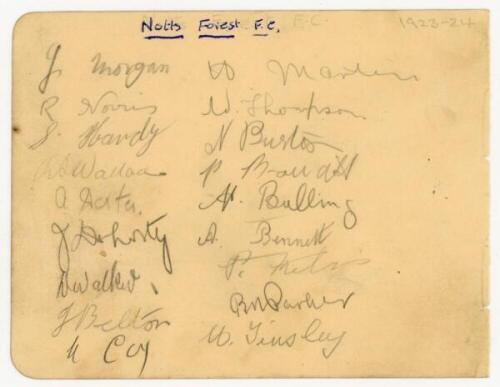 Notts Forest F.C.
F.C.
1923-24
J Morgan
R Norris
S. Hardy
Wallace
A
J Doherty
D Walker.
J Belton
N Coy
D Martin
W. Thompson
N Burton
P
H. Bulling
A. Bennett
P.
R M Parker
W. Tinsley